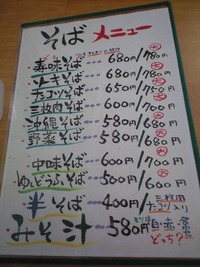 そば メニュー
ソーキそば 680円/780円 大
テビチそば 650円/750円 大
三枚肉そば 600円/700円 大
沖縄そば 580円/680円 大
野菜そば 580円/680円 大
中味そば 600円/700円 大
ゆしどうふそば 500円/600円 大
半そば 400円 三枚肉
みそ汁 580円 白・赤
どっち?